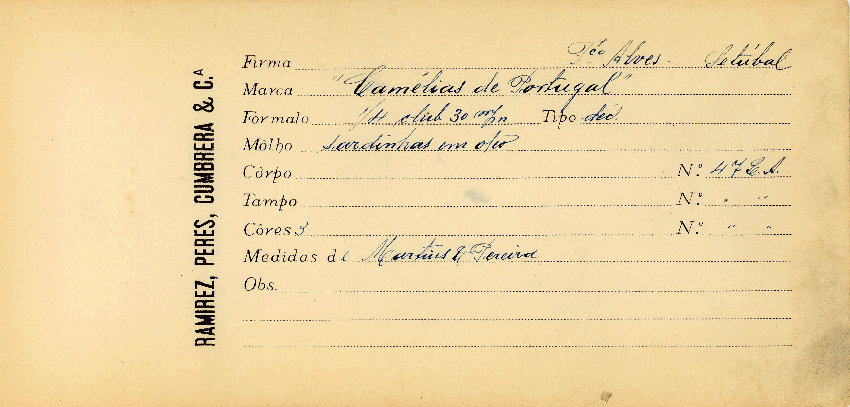 RAMIREZ, PERES, CUMBRERA & C.ᴬ
Firma Fco Alves - Setúbal
Marca "Camélias de Portugal"
Formato 1/4 club 30 m/m Tipo dec.
Môlho sardinhas em
Côrpo N.º 47
Tampo N.º " "
Côres 3 N.º " "
Medidas de Martins & Pereira
Obs.